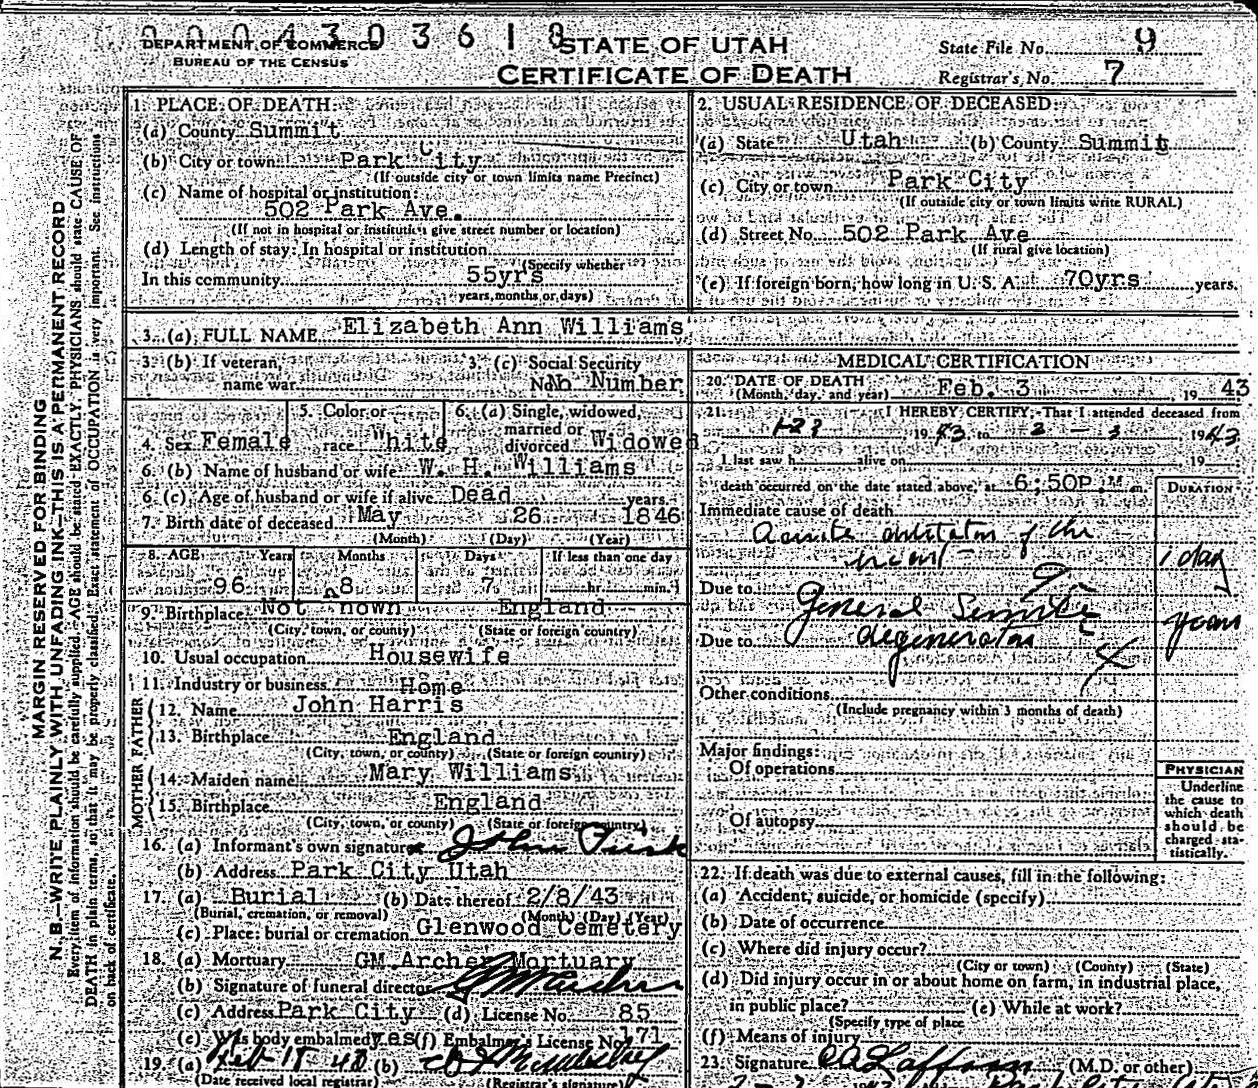 0004303618
DEPARTMENT OF COMMERCE
BUREAU OF THE CENSUS
STATE OF UTAH
CERTIFICATE OF DEATH
State File No. 9
Registrar's No. 7
MARGIN RESERVED FOR BINDING
N. B.—WRITE PLAINLY WITH UNFADING INK—THIS IS A PERMANENT RECORD
Every item of information should be carefully supplied. AGE should be stated EXACTLY, PHYSICIANS should state CAUSE OF
DEATH in plain terms, so that it may be properly classified. Exact statement of OCCUPATION is very important. See instructions
on back of certificate.
1. PLACE OF DEATH:
(a) County Summit
(b) City or town Park City
(If outside city or town limits name Precinct)
(c) Name of hospital or institution:
502 Park Ave.
(If not in hospital or institution give street number or location)
(d) Length of stay: In hospital or institution
(Specify whether
In this community 55yrs
years, months or days)
2. USUAL RESIDENCE OF DECEASED:
(a) State Utah (b) County Summit
(c) City or town Park City
(If outside city or town limits write RURAL)
(d) Street No. 502 Park Ave
(If rural give location)
(e) If foreign born, how long in U. S. A. 70yrs years.
3. (a) FULL NAME Elizabeth Ann Williams
3. (b) If veteran,
name war
3. (c) Social Security
No Number
4. Sex Female
5. Color or
race White
6. (a) Single, widowed,
married or
divorced Widowed
6. (b) Name of husband or wife W. H. Williams
6. (c) Age of husband or wife if alive Dead years
7. Birth date of deceased May 26 1846
(Month) (Day) (Year)
8. AGE: Years Months Days If less than one day
96 8 7 hr. min.
9. Birthplace Not nown England
(City, town, or county) (State or foreign country)
10. Usual occupation Housewife
11. Industry or business Home
FATHER
12. Name John Harris
13. Birthplace England
(City, town, or county) (State or foreign country)
MOTHER
14. Maiden name Mary Williams
15. Birthplace England
(City, town, or county) (State or foreign country)
16. (a) Informant's own signature John
(b) Address Park City Utah
17. (a) Burial (b) Date thereof 2/8/43
(Burial, cremation, or removal) (Month) (Day) (Year)
(c) Place: burial or cremation Glenwood Cemetery
18. (a) Mortuary GM.Archer Mortuary
(b) Signature of funeral director GM Archer
(c) Address Park City (d) License No. 85
(e) Was body embalmed yes (f) Embalmer's License No. 171
19. (a) Feb 15 43 (b)
(Date received local registrar) (Registrar's signature)
MEDICAL CERTIFICATION
20. DATE OF DEATH Feb. 3 19 43
(Month, day, and year)
21. I HEREBY CERTIFY, That I attended deceased from
1943 to 2 - 3 1943
I last saw h alive on 19
death occurred on the date stated above, at 6;50P. M m.
DURATION
Immediate cause of death
Acute dilitation of the
heart 1 day
Due to General Senile years
Due to degeneration
Other conditions
(Include pregnancy within 3 months of death)
Major findings:
Of operations
Of autopsy
PHYSICIAN
Underline
the cause to
which death
should be
charged sta-
tistically.
22. If death was due to external causes, fill in the following:
(a) Accident, suicide, or homicide (specify)
(b) Date of occurrence
(c) Where did injury occur?
(City or town) (County) (State)
(d) Did injury occur in or about home on farm, in industrial place,
in public place? (e) While at work?
(Specify type of place
(f) Means of injury
23. Signature (M.D. or other)